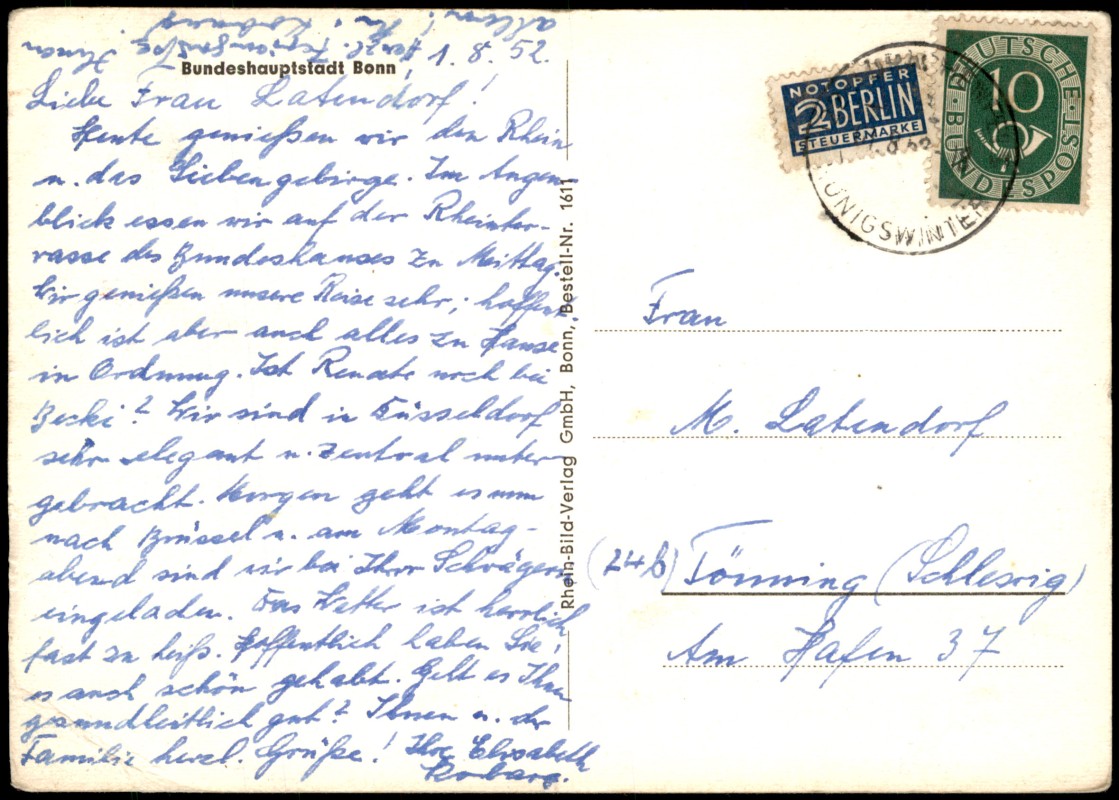 1. 8. 52.
Bundeshauptstadt Bonn
Liebe Frau Latendorf!
Heute genießen wir den Rhein
u. das Siebengebirge. Im Augen-
blick essen wir auf der Rheinter-
rasse des Bundeshauses zu Mittag.
Wir genießen unsere Reise sehr, hoffent-
lich ist aber auch alles zu Hause
in Ordnung. Ist Renate noch bei
? Wir sind in Düsseldorf
sehr elegant u. zentral unter-
gebracht. Morgen geht es nun
nach Brüssel u. am Montag-
abend sind wir bei Ihrer Schwägerin
eingeladen. Das Wetter ist herrlich,
fast zu heiß. Hoffentlich haben Sie
es auch schön gehabt. Geht es Ihnen
gesundheitlich gut? Ihnen u. der
Familie herzl. Grüße! Ihre Elisabeth
Korbarg.
Ihnen
allen!
Rhein-Bild-Verlag GmbH, Bonn, Bestell-Nr. 1611
NOTOPFER
2 BERLIN
STEUERMARKE
DEUTSCHE BUNDESPOST
10
KÖNIGSWINTER
Frau
M. Latendorf
(24b) Tönning (Schleswig)
Am Hafen 37